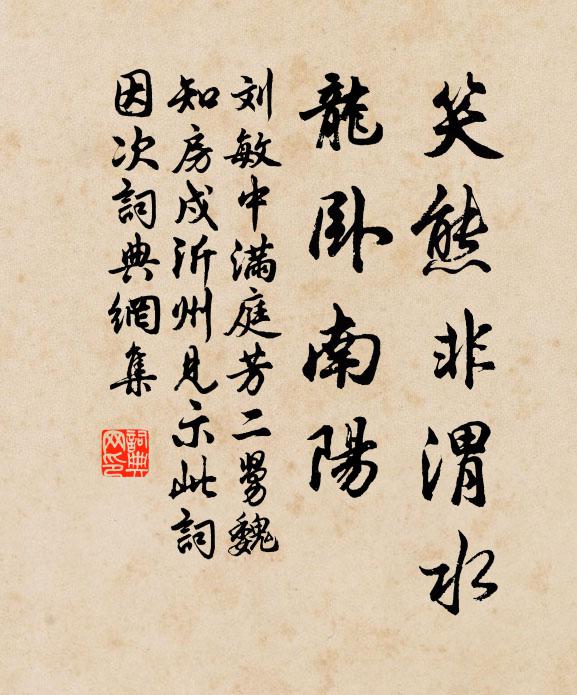 笑熊非渭水
龍卧南陽
刘敏中满庭芳二舅魏
知房戍沂州見示此詞
因次詞典網集
詞典
网印